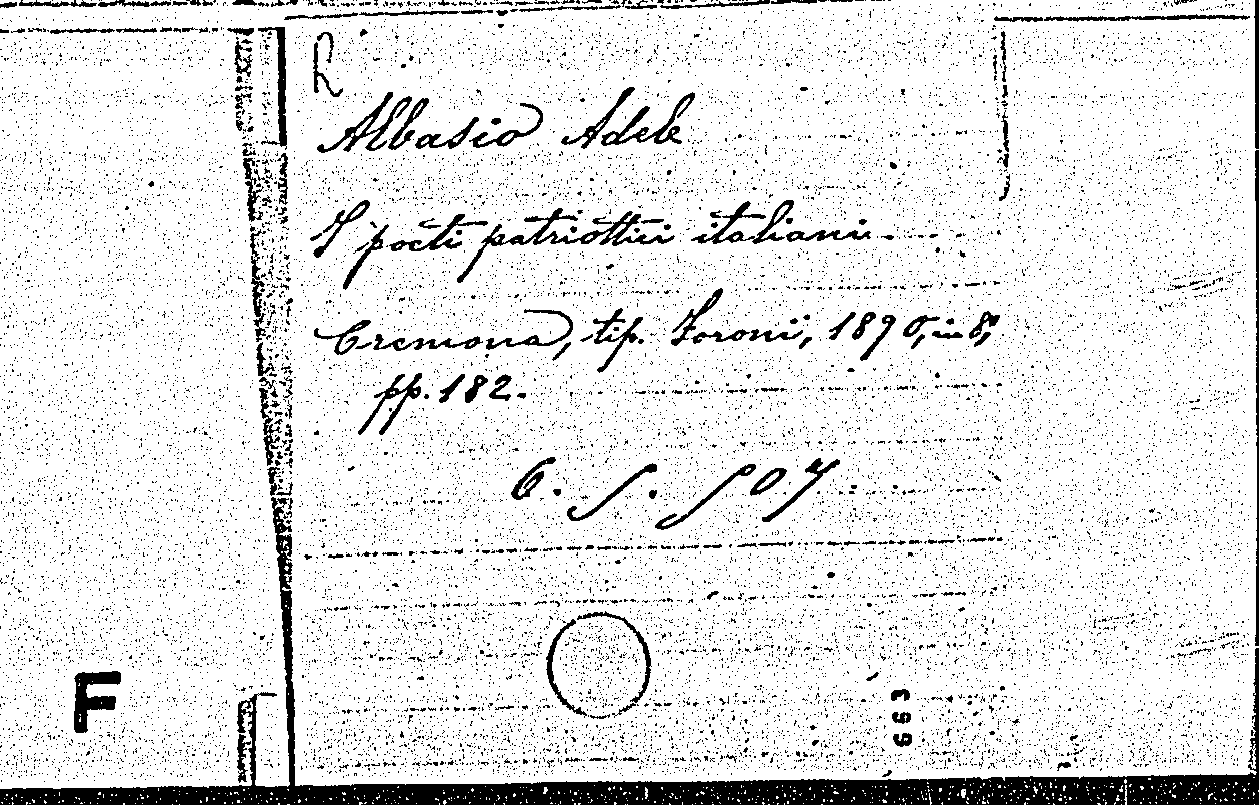 R
Albasio Adele
I poeti patriottici italiani.
Cremona, tip. Foroni, 1890, in 8º,
pp. 182.
6. J. J07
F
663